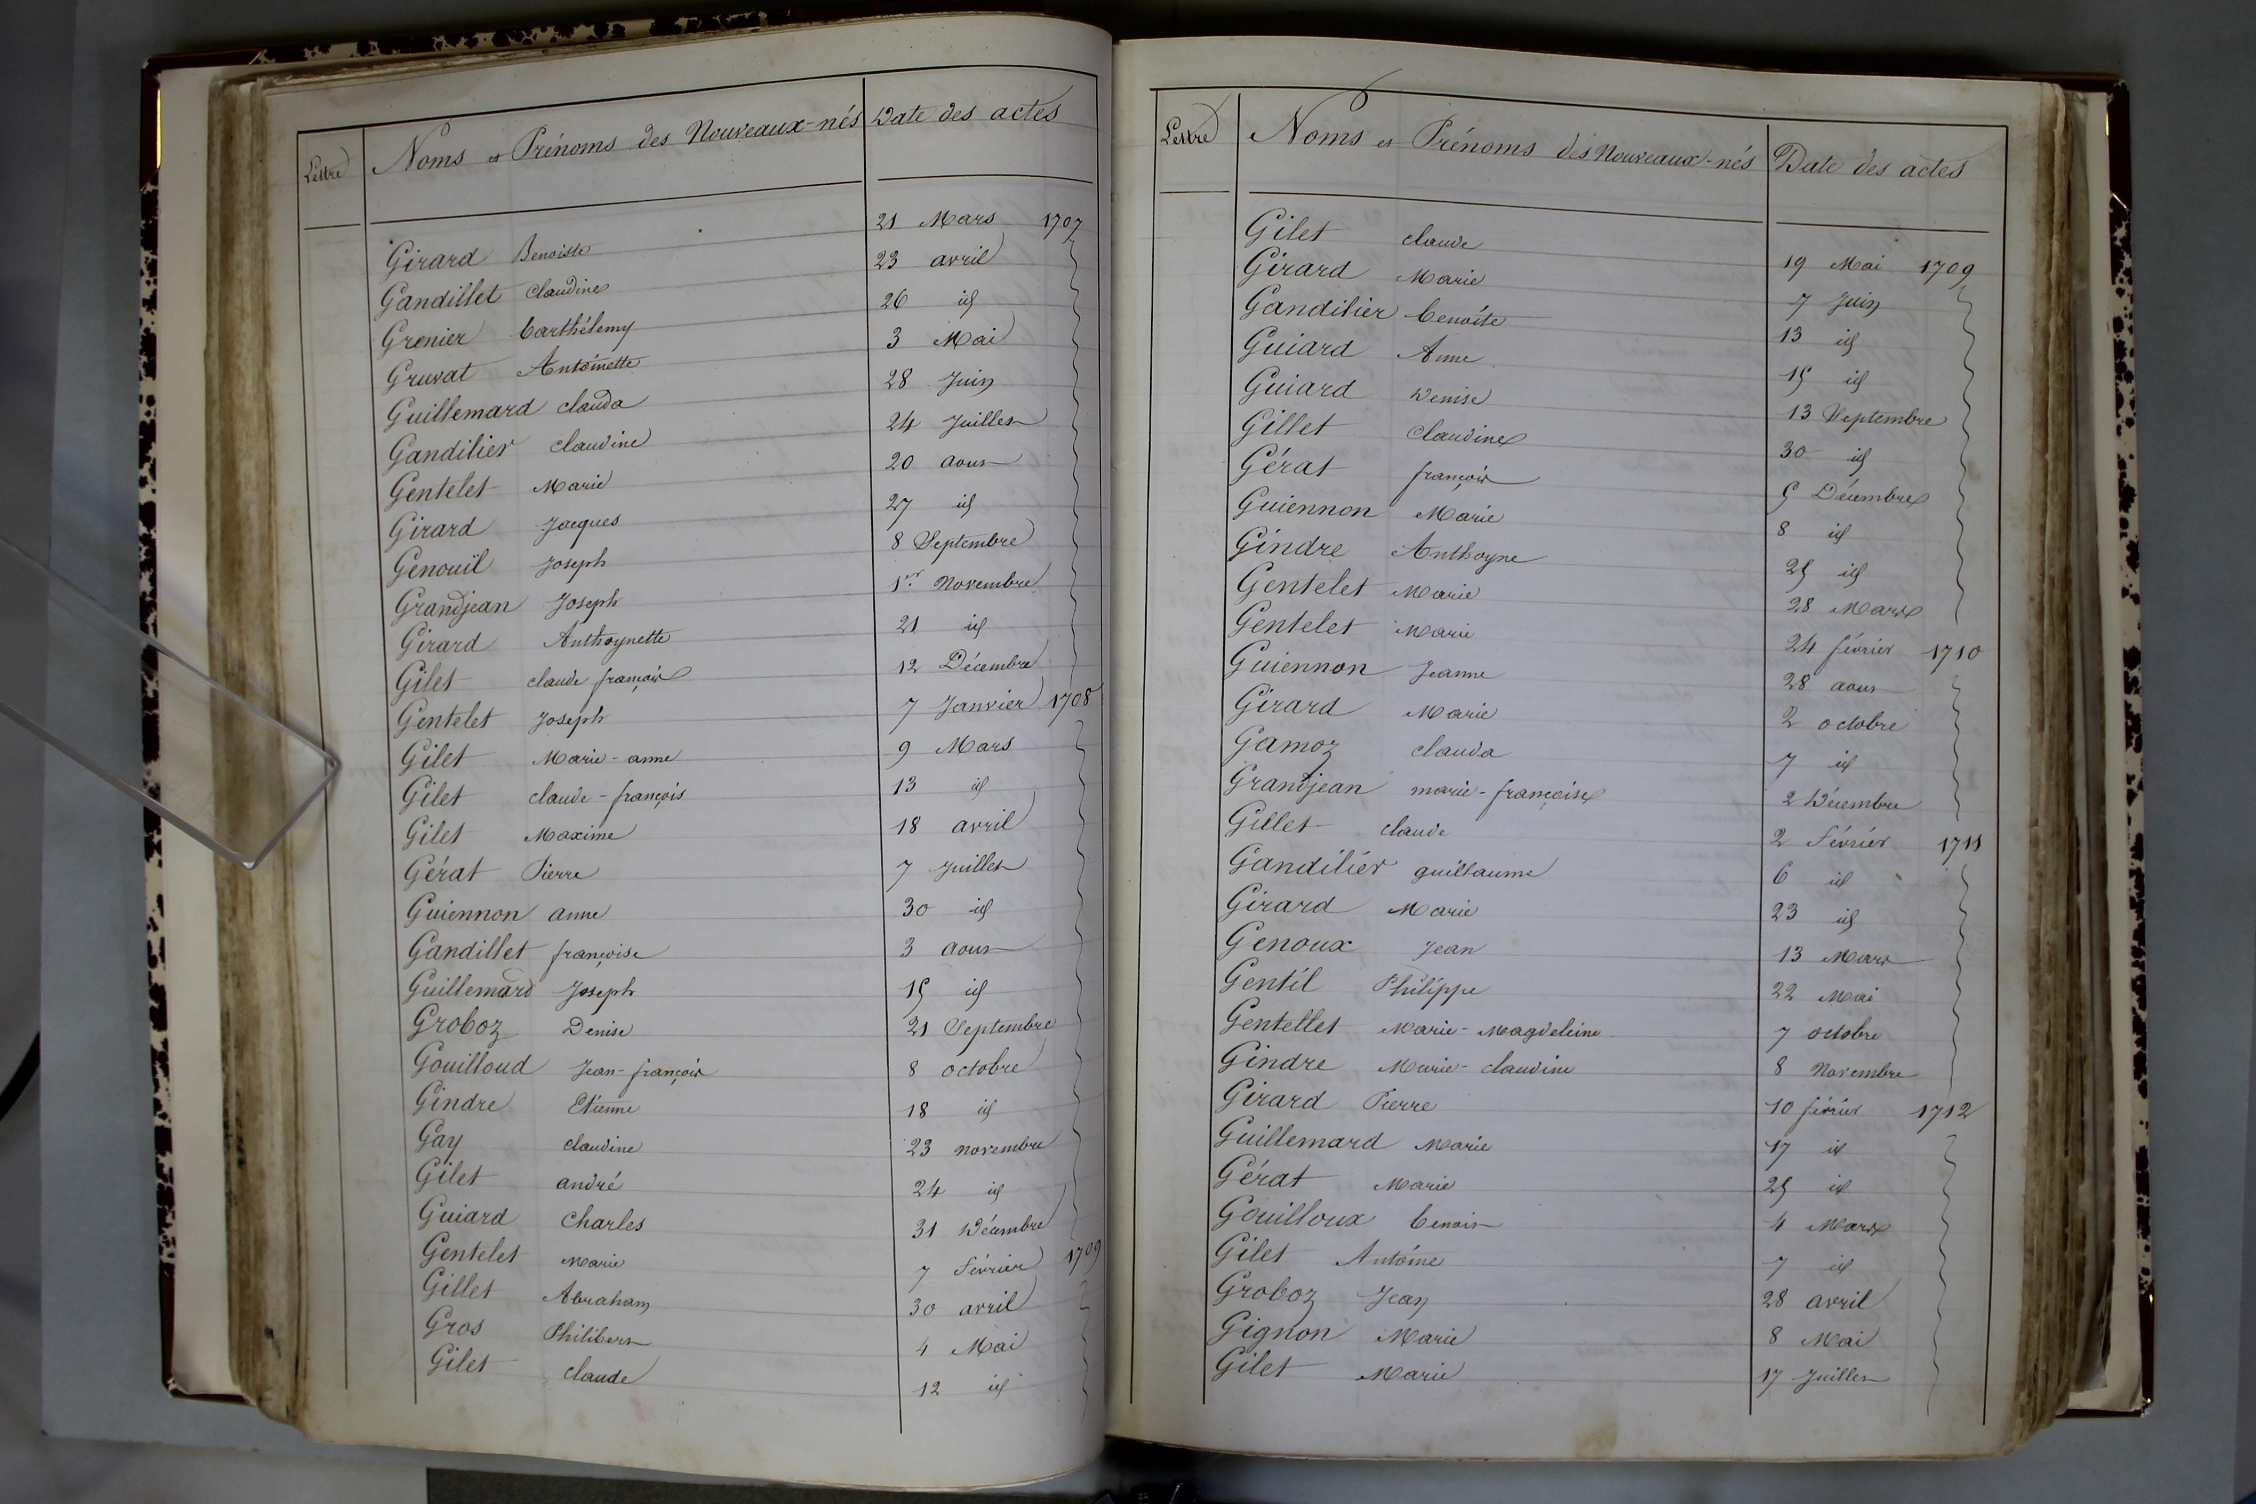 Lettre Noms et Prénoms des Nouveaux-nés Date des actes
Girard Benoiste 21 Mars 1707
Gandillet Claudine 23 avril
Grenier barthélemy 26 id
Gruvat Antoinette 3 Mai
Guillemard clauda 28 Juin
Gandilier claudine 24 Juillet
Gentelet Marie 20 aout
Girard Jacques 27 id
Genouïl Joseph 8 Septembre
Grandjean Joseph 1er Novembre
Girard Anthoynette 21 id
Gilet claude françois 12 Décembre
Gentelet Joseph 7 Janvier 1708
Gilet Marie-anne 9 Mars
Gilet claude-françois 13 id
Gilet Maxime 18 avril
Gérat Pierre 7 Juillet
Guiennon anne 30 id
Gandillet françoise 3 aout
Guillemard Joseph 15 id
Groboz Denise 21 Septembre
Gouilloud Jean-françois 8 octobre
Gindre Etienne 18 id
Gay claudine 23 novembre
Gilet andré 24 id
Guiard Charles 31 Décembre
Gentelet Marie 7 Février 1709
Gillet Abraham 30 avril
Gros Philibert 4 Mai
Gilet claude 12 id
Lettre Noms et Prénoms des Nouveaux-nés Date des actes
Gilet claude 19 Mai 1709
Girard Marie 7 Juin
Gandilier benoite 13 id
Guiard Anne 15 id
Guiard Denise 13 Septembre
Gillet Claudine 30 id
Gérat françois 5 Décembre
Guiennon Marie 8 id
Gindre Anthoyne 25 id
Gentelet Marie 28 Mars
Gentelet Marie 24 février 1710
Guiennon Jeanne 28 aout
Girard Marie 2 octobre
Gamoz clauda 7 id
Grandjean marie-françoise 2 Décembre
Gillet claude 2 Février 1711
Gandilier guillaume 6 id
Girard Marie 23 id
Genoux Jean 13 Mars
Gentil Philippe 22 Mai
Gentellet Marie-Magdeleine 7 octobre
Gindre Marie-claudine 8 Novembre
Girard Pierre 10 février 1712
Guillemard Marie 17 id
Gérat Marie 25 id
Gouilloux benoit 4 Mars
Gilet Antoine 7 id
Groboz Jean 28 avril
Gignon Marie 8 Mai
Gilet Marie 17 Juillet